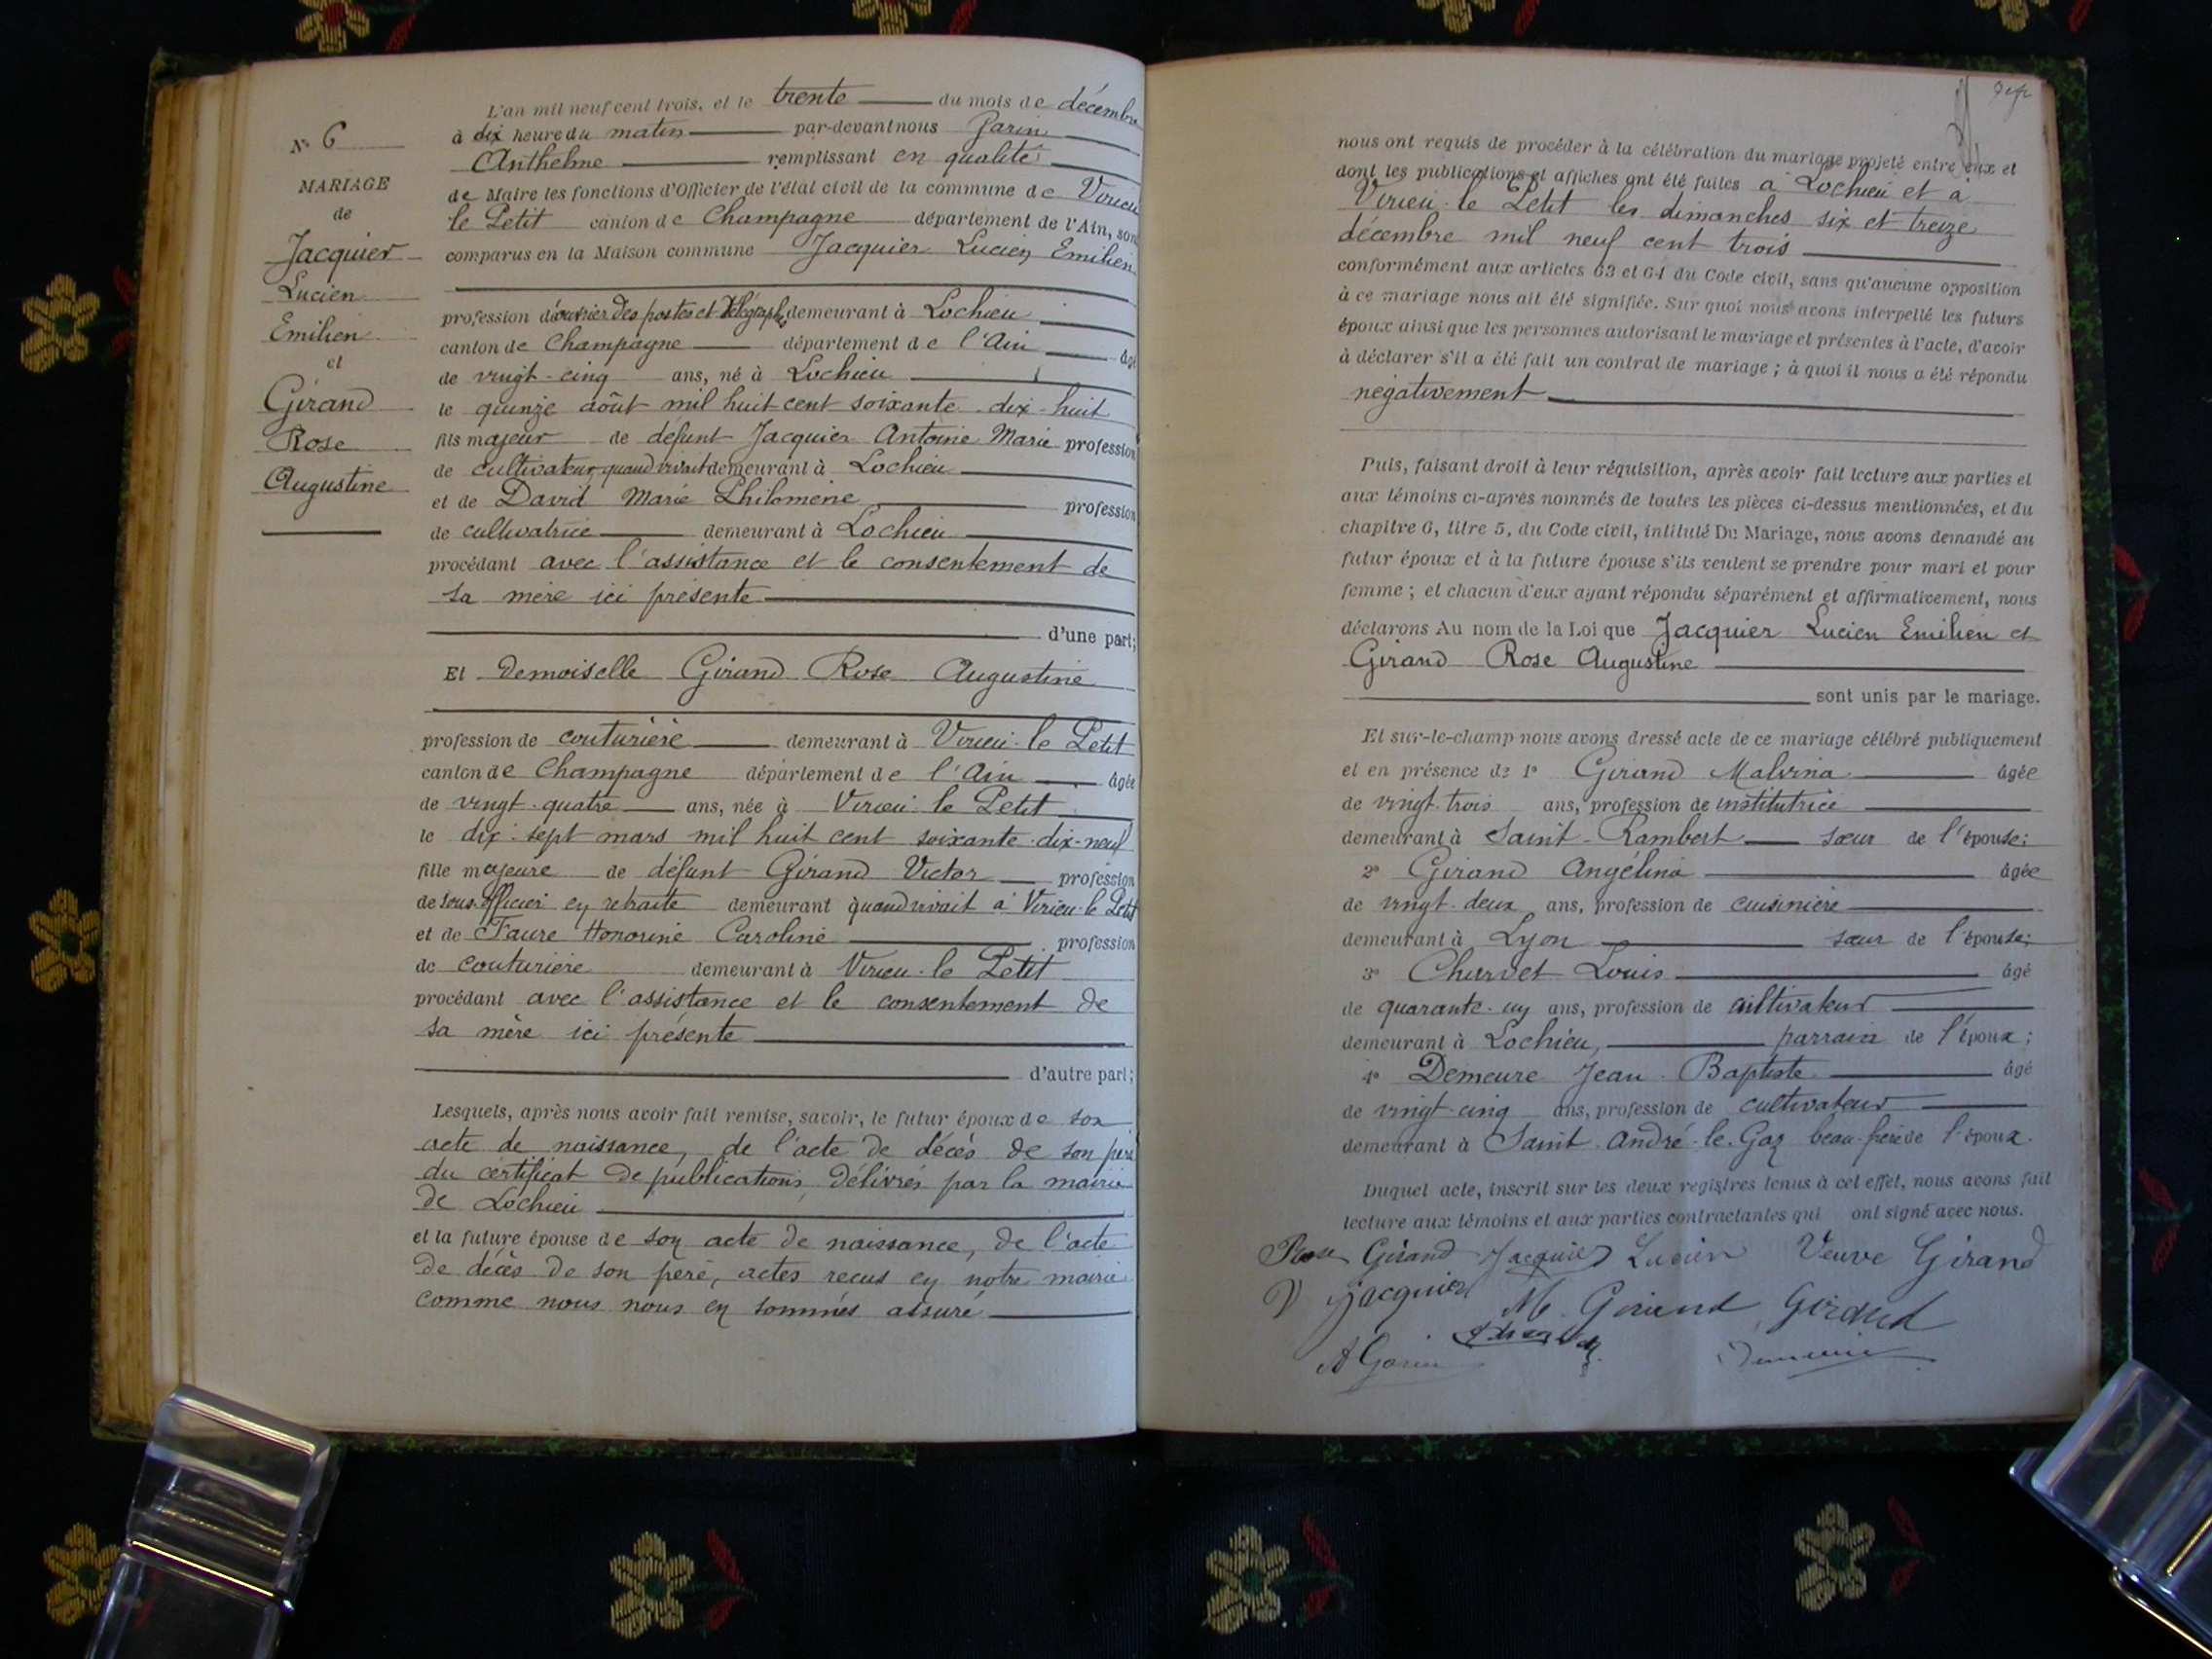 N° 6
MARIAGE
de
Jacquier
Lucien
Emilien
et
Girand
Rose
Augustine
L'an mil neuf cent trois, et le trente du mois de décembre
à dix heure du matin par-devant nous Garin
Anthelme remplissant en qualité
de Maire les fonctions d'Officier de l'état civil de la commune de Virieu
le Petit canton de Champagne département de l'Ain, sont
comparus en la Maison commune Jacquier Lucien Emilien
profession d'ouvrier des postes et télégraphes demeurant à Lochieu
canton de Champagne département de l'Ain âgé
de vingt-cinq ans, né à Lochieu
le quinze août mil huit cent soixante-dix-huit
fils majeur de défunt Jacquier Antoine Marie profession
de cultivateur, quand vivait demeurant à Lochieu
et de David Marie Philomène profession
de cultivatrice demeurant à Lochieu
procédant avec l'assistance et le consentement de
sa mère ici présente
d'une part;
Et Demoiselle Girand Rose Augustine
profession de couturière demeurant à Virieu-le Petit
canton de Champagne département de l'Ain âgée
de vingt-quatre ans, née à Virieu le Petit
le dix-sept mars mil huit cent soixante-dix-neuf
fille majeure de défunt Girand Victor profession
de sous-officier en retraite demeurant quand vivait à Virieu-le Petit
et de Faure Honorine Caroline profession
de couturière demeurant à Virieu-le Petit
procédant avec l'assistance et le consentement de
sa mère ici présente
d'autre part;
Lesquels, après nous avoir fait remise, savoir, le futur époux de son
acte de naissance, de l'acte de décès de son père
du certificat de publications, délivrés par la mairie
de Lochieu
et la future épouse de son acte de naissance, de l'acte
de décès de son père, actes reçus en notre mairie
comme nous nous en sommes assuré
nous ont requis de procéder à la célébration du mariage projeté entre eux et
dont les publications et affiches ont été faites à Lochieu et à
Virieu-le Petit les dimanches six et treize
décembre mil neuf cent trois
conformément aux articles 63 et 64 du Code civil, sans qu'aucune opposition
à ce mariage nous ait été signifiée. Sur quoi nous avons interpellé les futurs
époux ainsi que les personnes autorisant le mariage et présentes à l'acte, d'avoir
à déclarer s'il a été fait un contrat de mariage; à quoi il nous a été répondu
négativement
Puis, faisant droit à leur réquisition, après avoir fait lecture aux parties et
aux témoins ci-après nommés de toutes les pièces ci-dessus mentionnées, et du
chapitre 6, titre 5, du Code civil, intitulé Du Mariage, nous avons demandé au
futur époux et à la future épouse s'ils veulent se prendre pour mari et pour
femme; et chacun d'eux ayant répondu séparément et affirmativement, nous
déclarons Au nom de la Loi que Jacquier Lucien Emilien et
Girand Rose Augustine
sont unis par le mariage.
Et sur-le-champ nous avons dressé acte de ce mariage célébré publiquement
et en présence de 1° Girand Malvina âgée
de vingt-trois ans, profession de institutrice
demeurant à Saint-Rambert sœur de l'épouse;
2° Girand Angélina âgée
de vingt-deux ans, profession de cuisinière
demeurant à Lyon sœur de l'épouse;
3° Charvet Louis âgé
de quarante-un ans, profession de cultivateur
demeurant à Lochieu, parrain de l'époux;
4° Demeure Jean-Baptiste âgé
de vingt-cinq ans, profession de cultivateur
demeurant à Saint-André-le-Gaz beau-frère de l'époux.
Duquel acte, inscrit sur les deux registres tenus à cet effet, nous avons fait
lecture aux témoins et aux parties contractantes qui ont signé avec nous.
Rose Girand Jacquier Lucien Veuve Girand
V Jacquier M. Girand Girand
A Garin Demeure